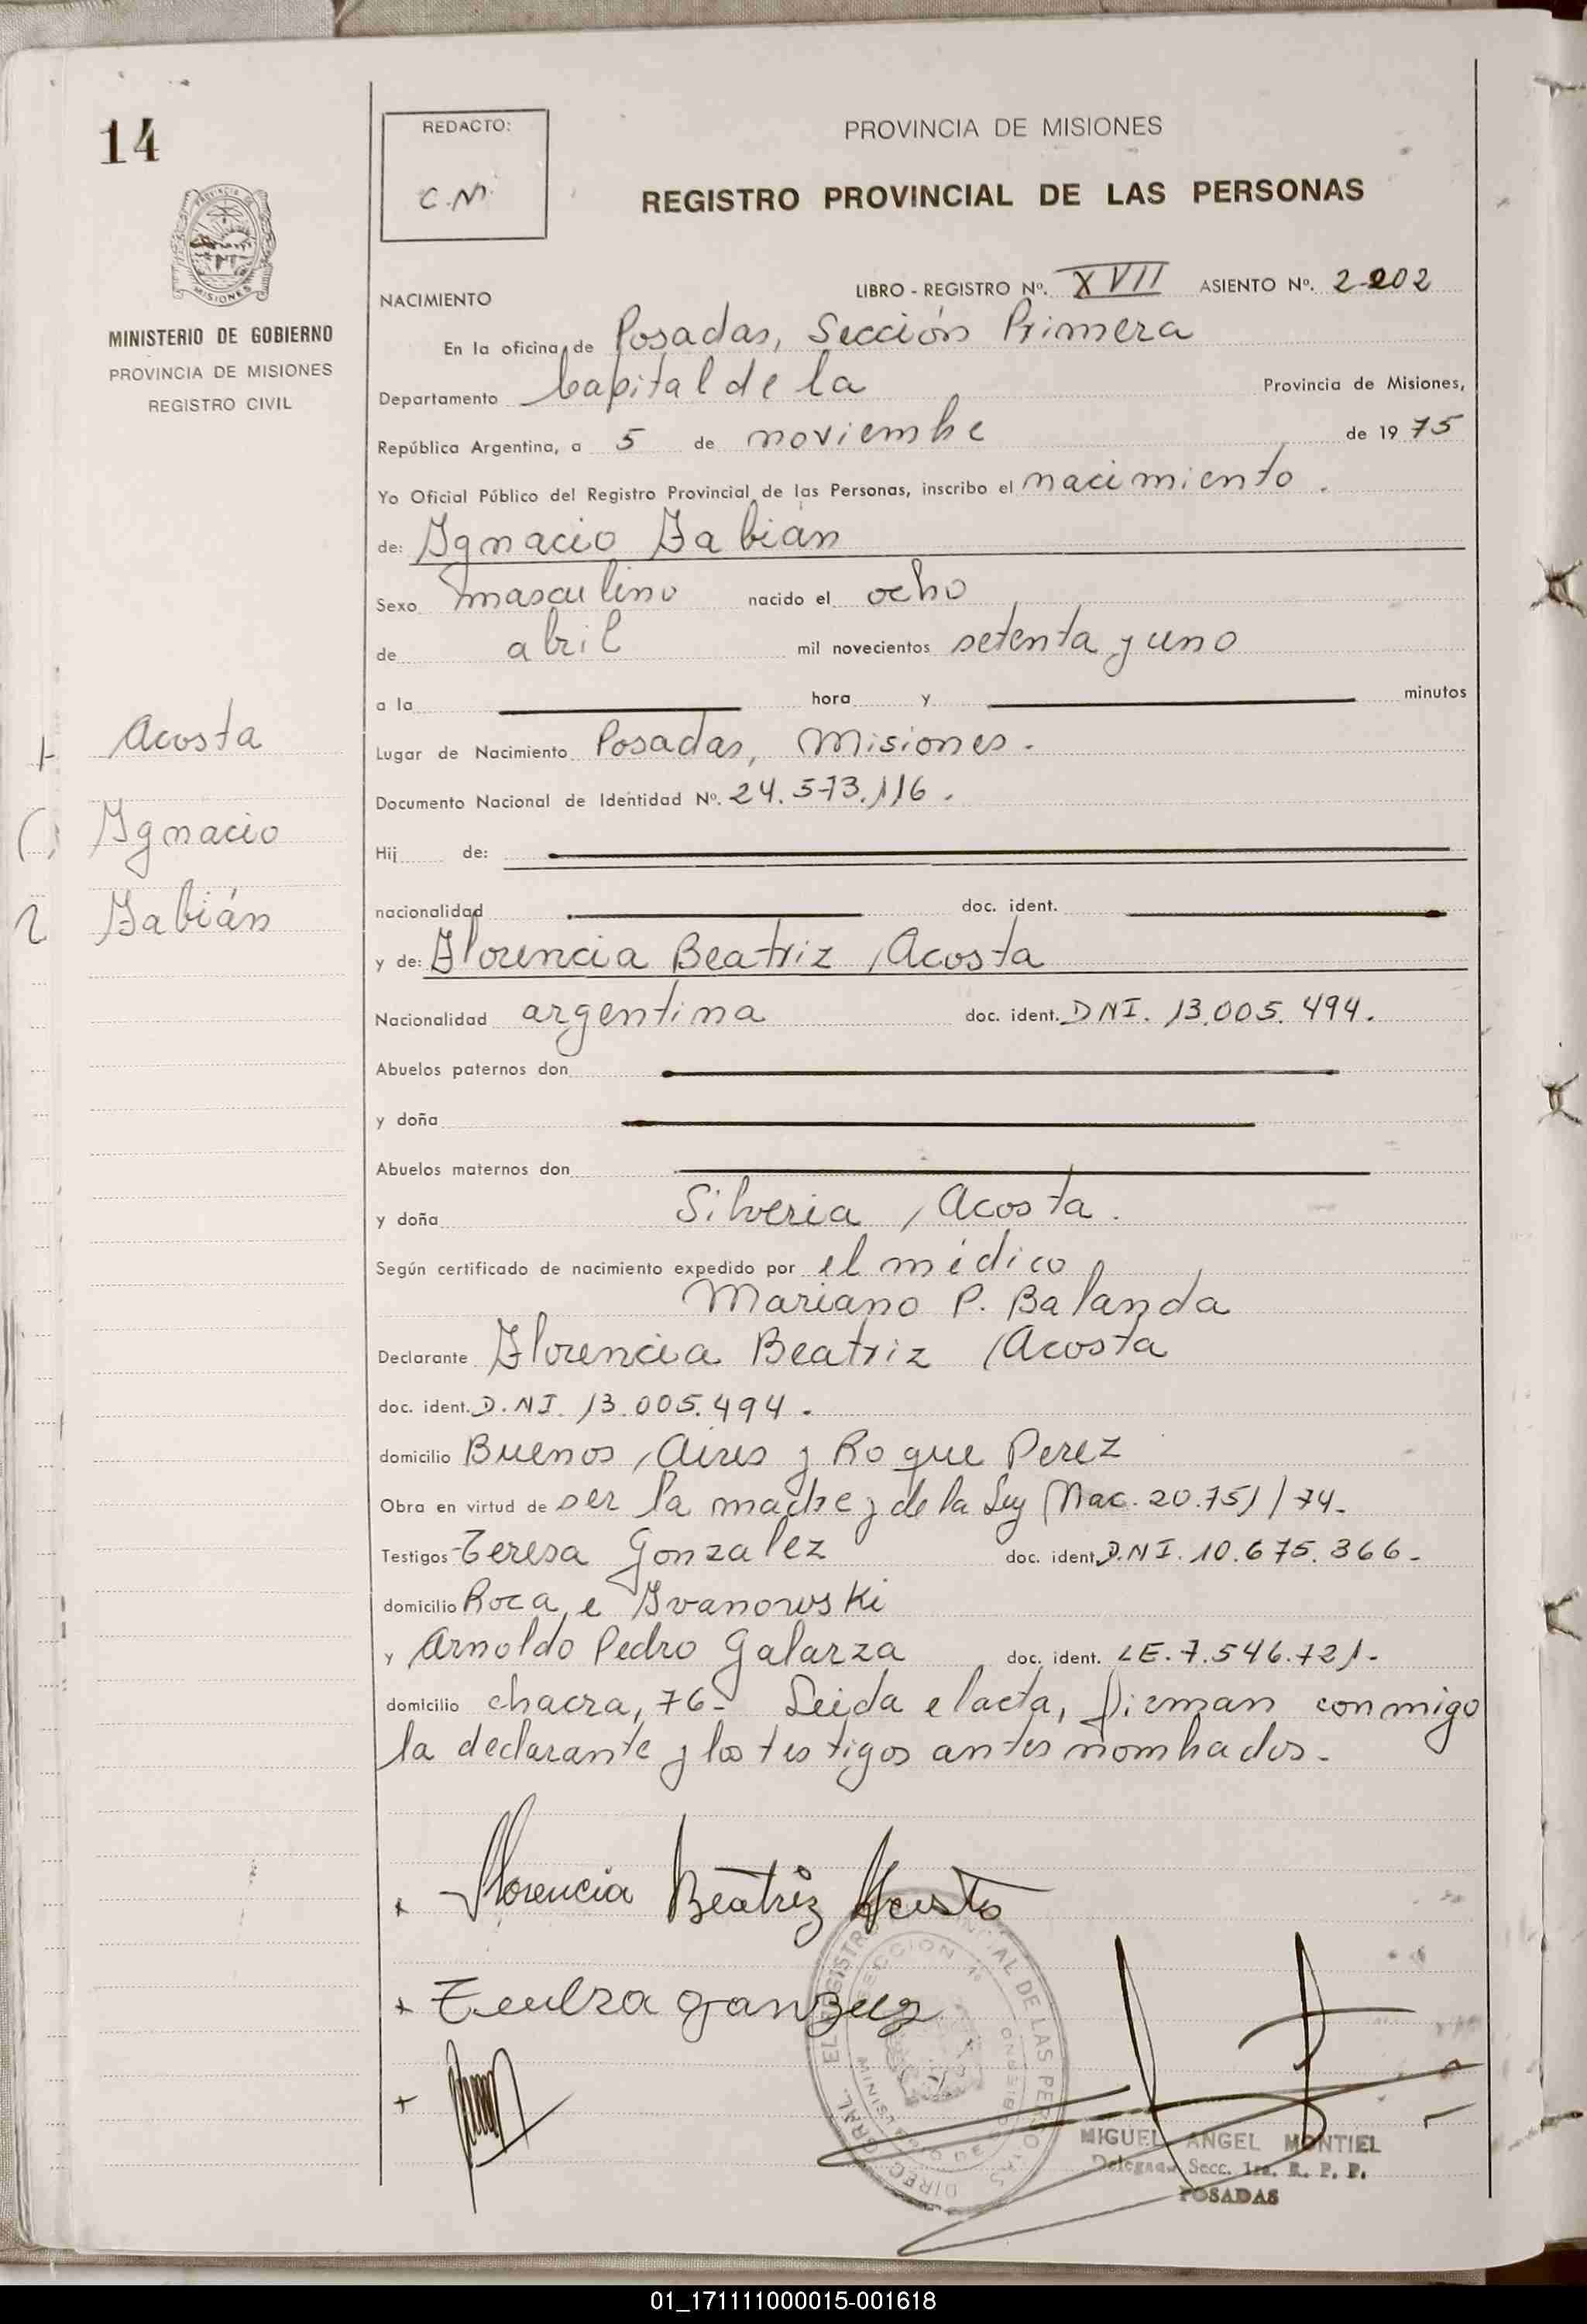 14
PROVINCIA DE MISIONES
MINISTERIO DE GOBIERNO
PROVINCIA DE MISIONES
REGISTRO CIVIL
REDACTO:
C.M.
PROVINCIA DE MISIONES
REGISTRO PROVINCIAL DE LAS PERSONAS
NACIMIENTO LIBRO - REGISTRO Nº. XVII ASIENTO Nº. 2202
En la oficina de Posadas, Sección Primera
Departamento Capital de la Provincia de Misiones,
República Argentina, a 5 de noviembre de 1975
Yo Oficial Público del Registro Provincial de las Personas, inscribo el nacimiento.
de: Ignacio Fabián
Sexo masculino nacido el ocho
de abril mil novecientos setenta y uno
a la hora y minutos
Acosta
Lugar de Nacimiento Posadas, Misiones.
Documento Nacional de Identidad Nº. 24.573.116.
Ignacio
Hij de:
Fabián
nacionalidad doc. ident.
y de: Florencia Beatriz Acosta
Nacionalidad argentina doc. ident. DNI. 13.005.494.
Abuelos paternos don
y doña
Abuelos maternos don
y doña Silveria Acosta.
Según certificado de nacimiento expedido por el médico
Mariano P. Balanda
Declarante Florencia Beatriz Acosta
doc. ident. D.NI. 13.005.494.
domicilio Buenos Aires y Roque Perez
Obra en virtud de ser la madre y de la Ley Nac. 20.751/74.
Testigos Teresa Gonzalez doc. ident. D.NI. 10.675.366.
domicilio Roca e Ivanowski
y Arnoldo Pedro Galarza doc. ident. LE. 7.546.721.
domicilio chacra, 76- Leida el acta, firman conmigo
la declarante y los testigos antes nombrados.
Florencia Beatriz Acosta
DIREC. GRAL. EL REGISTRO PROVINCIAL DE LAS PERSONAS
SECCION 1º
MINISTERIO DE GOBIERNO
MIGUEL ANGEL MONTIEL
Delegado Secc. 1ra. R. P. P.
POSADAS
01_171111000015-001618